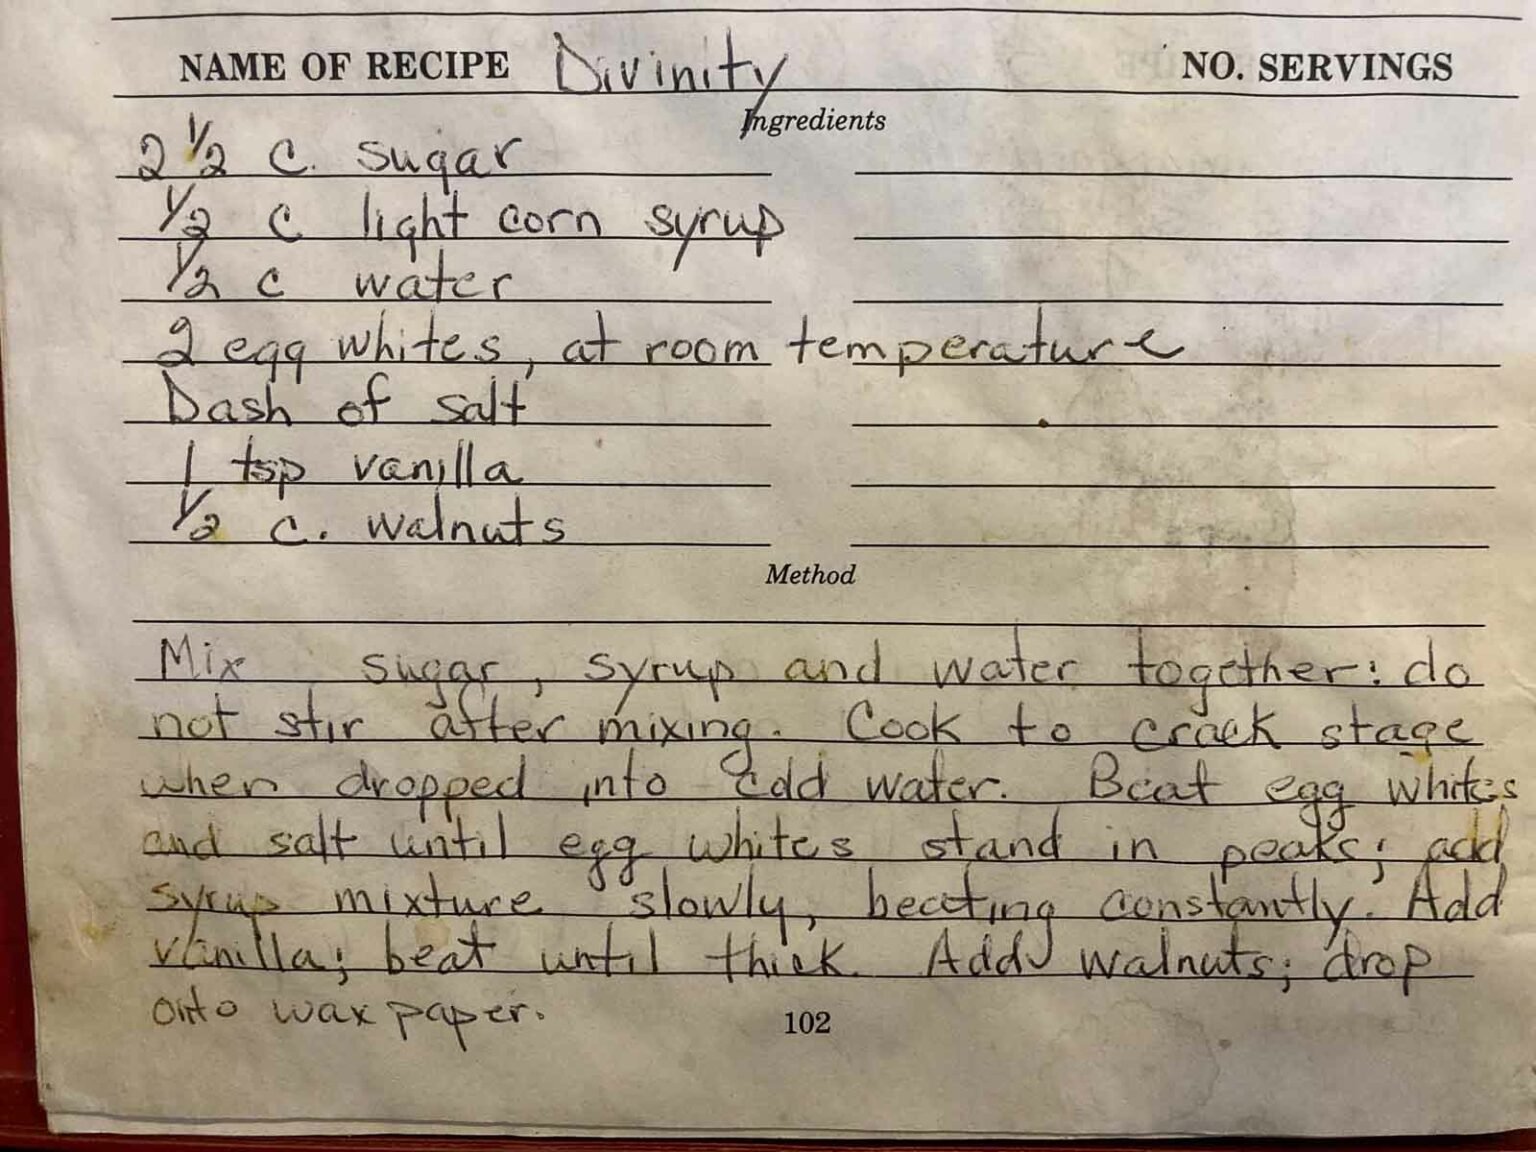 NAME OF RECIPE Divinity NO. SERVINGS
Ingredients
2 1/2 c. sugar
1/2 c light corn syrup
1/2 c water
2 egg whites, at room temperature
Dash of salt
1 tsp vanilla
1/2 c. walnuts
Method
Mix sugar, syrup and water together: do
not stir after mixing. Cook to crack stage
when dropped into cold water. Beat egg whites
and salt until egg whites stand in peaks; add
syrup mixture slowly, beating constantly. Add
vanilla; beat until thick. Add walnuts; drop
onto wax paper.
102